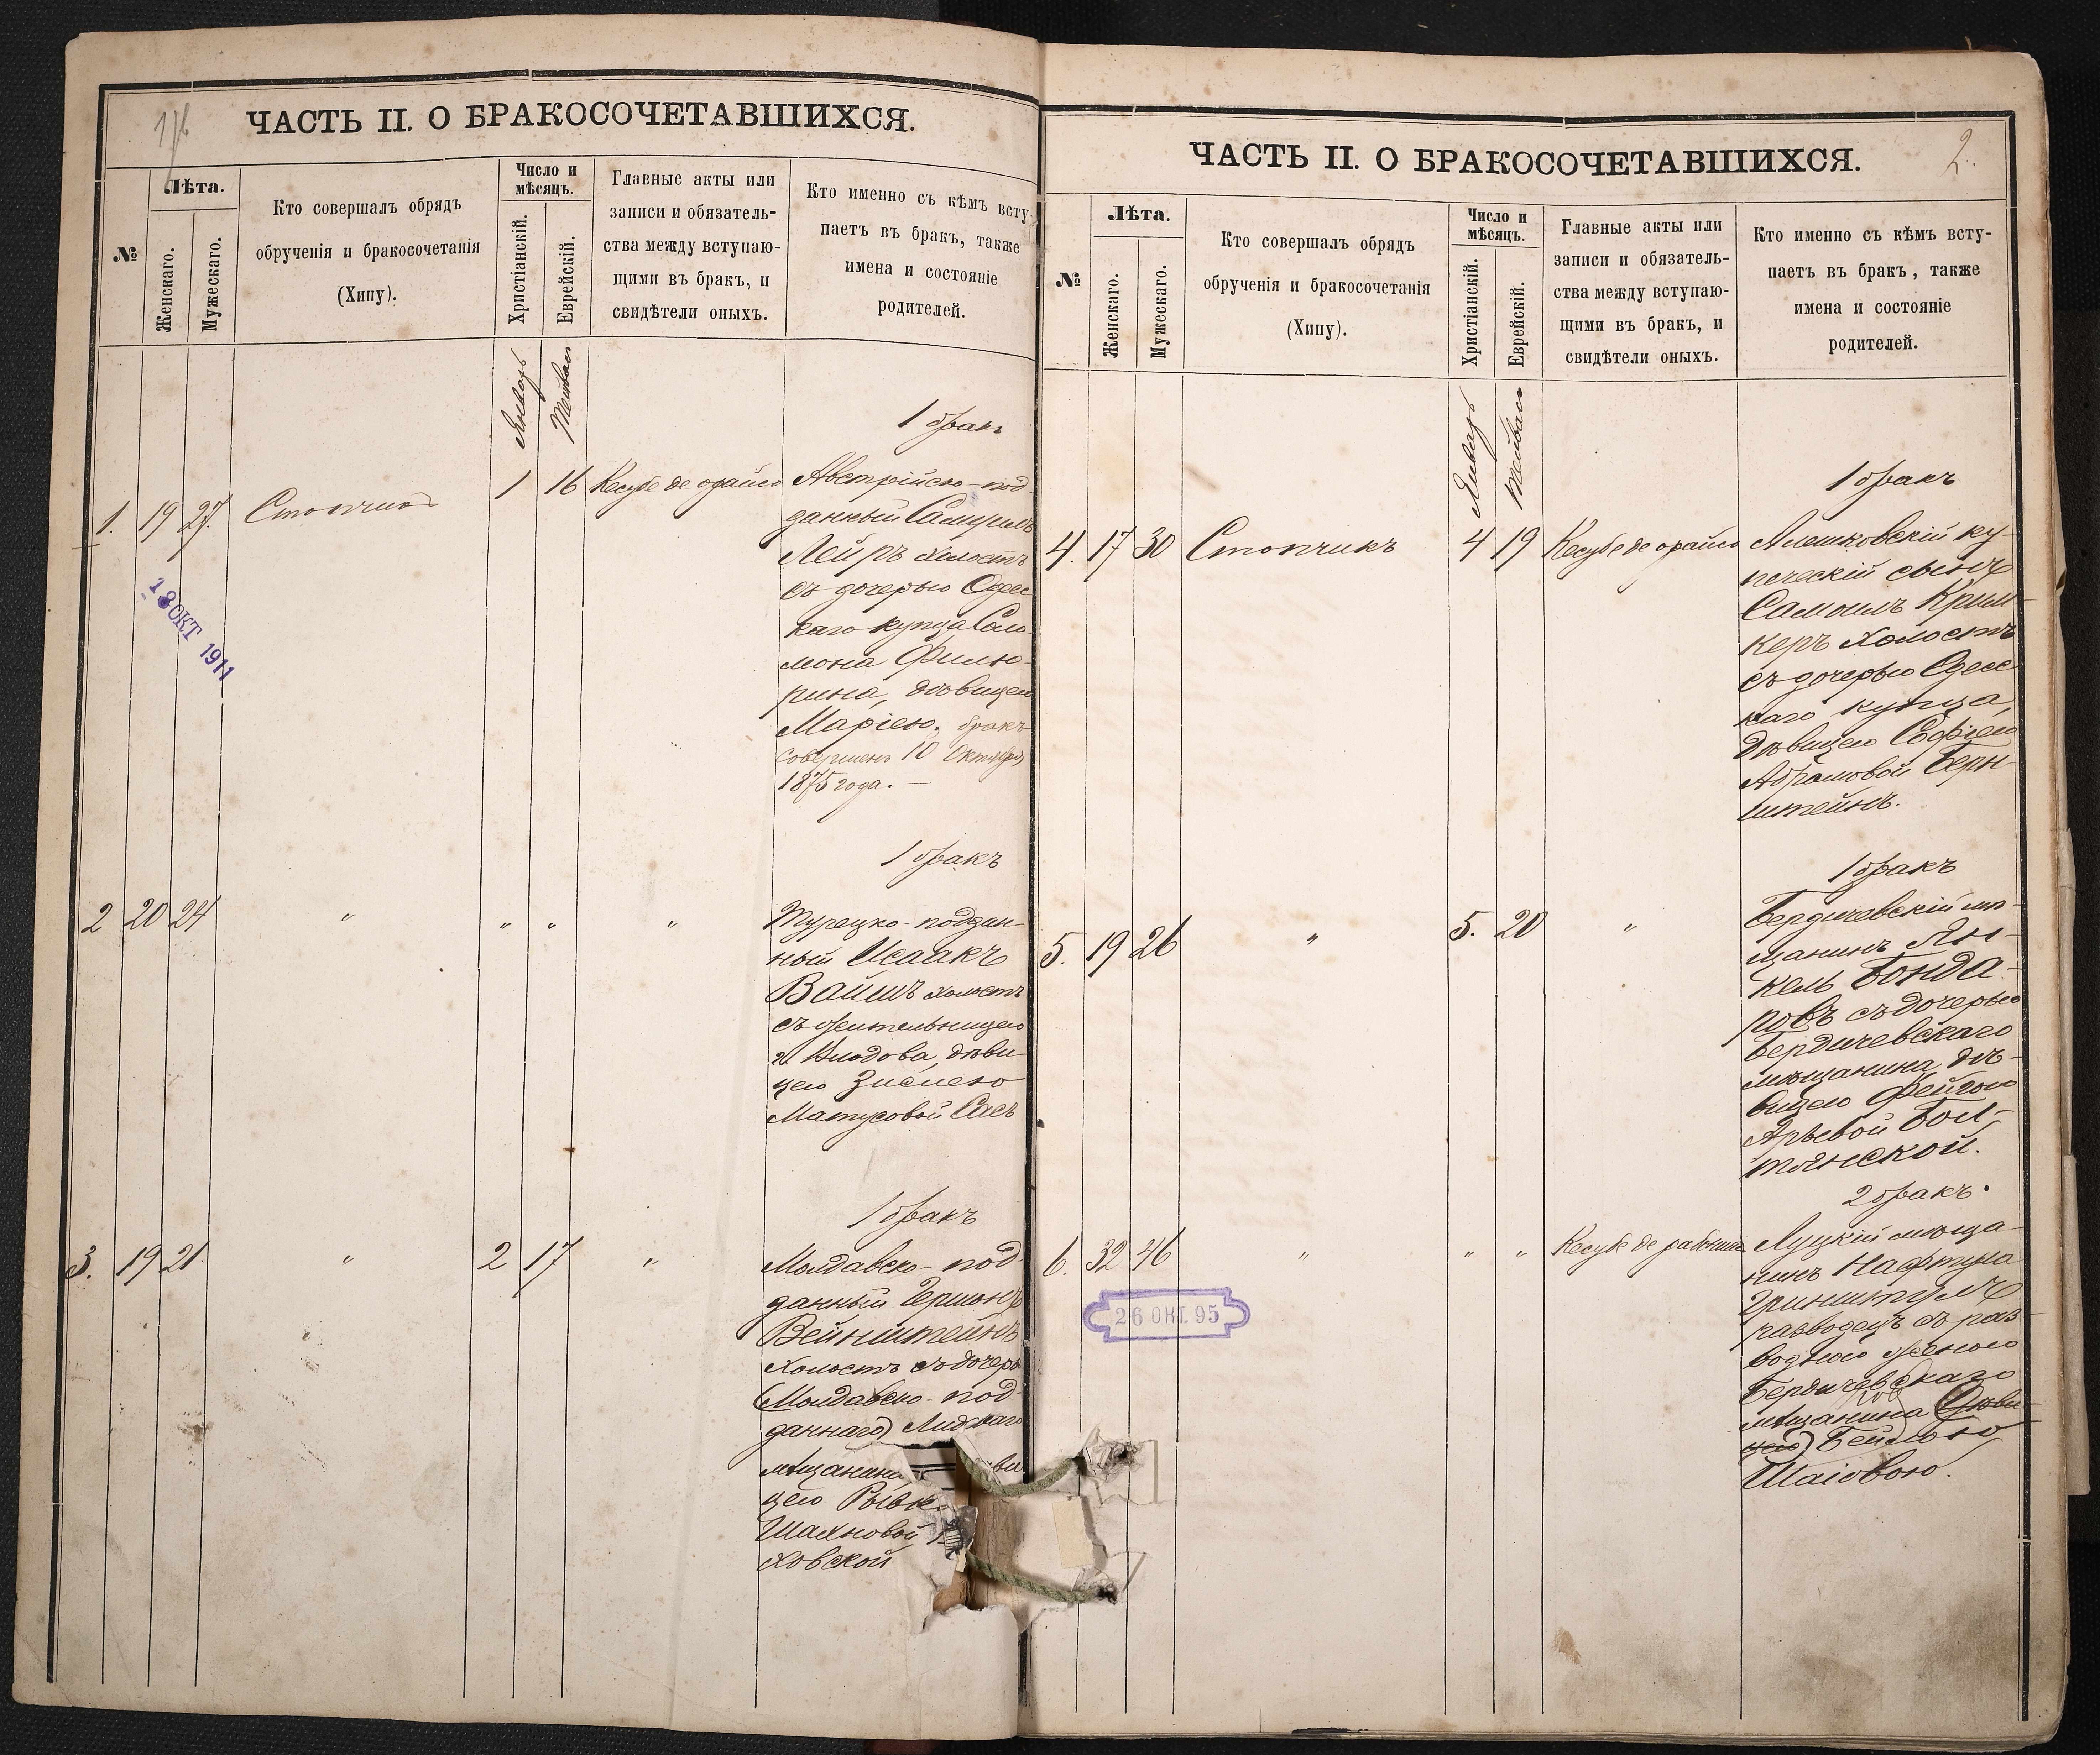 1/6
ЧАСТЬ II. О БРАКОСОЧЕТАВШИХСЯ.
№
Лѣта.
Женскаго.
Мужескаго.
Кто совершалъ обрядъ
обрученія и бракосочетанія
(Хипу).
Число и
мѣсяцъ.
Христіанскій.
Еврейскій.
Главные акты или
записи и обязатель-
ства между вступаю-
щими въ бракъ, и
свидѣтели оныхъ.
Кто именно съ кѣмъ всту-
паетъ въ бракъ, также
имена и состояніе
родителей.
Январь
Тейвасъ
1 бракъ
1. 19 27. Стопчикъ 1 16 Кесубе де орайсо Австрійско-под-
данный Самуилъ
Лейръ холостъ
съ дочерью Одес
каго купца Соло
мона Филю-
рина, дѣвицею
Маріею. бракъ
совершенъ 10 Октября
1875 года. —
18 ОКТ 1911
1 бракъ
2 20 24 " " " " Турецко-поддан-
ный Исаакъ
Вайшъ холостъ
съ жительницею
г. Клодова, дѣви-
цею Зислею
Матусовой Сасъ
1 бракъ
3. 19 21. " 2 17 " Молдавско-под-
данный Гершонъ
Вейнштейнъ
холостъ съ дочерь
(Молдавско-под-
даннаго)
мѣщанина
цею Рывк
Шахновой
ховской
2.
ЧАСТЬ II. О БРАКОСОЧЕТАВШИХСЯ.
№
Лѣта.
Женскаго.
Мужескаго.
Кто совершалъ обрядъ
обрученія и бракосочетанія
(Хипу).
Число и
мѣсяцъ.
Христіанскій.
Еврейскій.
Главные акты или
записи и обязатель-
ства между вступаю-
щими въ бракъ, и
свидѣтели оныхъ.
Кто именно съ кѣмъ всту-
паетъ въ бракъ, также
имена и состояніе
родителей.
Январь
Тейвасъ
1 бракъ
4. 17 30 Стопчикъ 4 19 Кесубе де орайсо Алешковскій ку-
печескій сынъ
Самоилъ Крим-
керъ холостъ
съ дочерью Одесс
каго купца,
дѣвицею Софіею
Абрамовой Берн-
штейнъ.
1 бракъ
5. 19 26 " 5. 20 " Бердичевскій мѣ-
щанинъ Ян-
кель Бонда-
ровъ съ дочерью
Бердичевскаго
мѣщанина, дѣ-
вицею Фейгою
Арьевой Бол-
тянской.
2 бракъ.
6. 32 46 " " " Кесубе де рабонынъ Луцкій мѣща-
нинъ Нафтула
Гриншпунъ
разводецъ съ раз-
водною женою
Бердичевскаго
мѣщанина (дѣви-
цею) Бейлою
Шаіовою.
26 ОКТ. 95